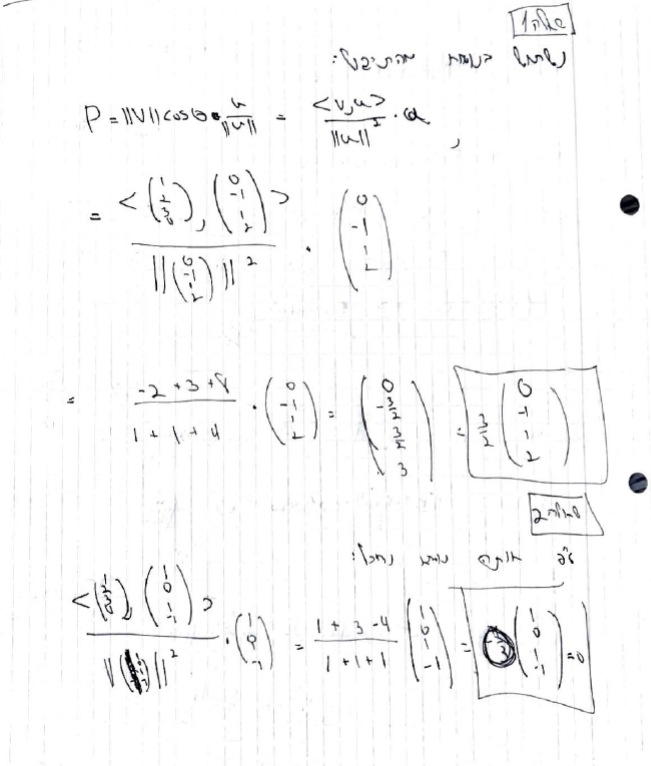 שאלה 1
נשתמש בנוסחת ההיטל:
P = ||V|| cosθ · u/||u|| = <v,u>/||u||² · u,
= <(1 2 3 4), (0 -1 1 2)> / ||(0 -1 1 2)||² · (0 -1 1 2)
= (-2+3+8)/(1+1+4) · (0 -1 1 2) = (0 -3/2 3/2 3) = 3/2 (0 -1 1 2)
שאלה 2
<(1 2 3 4), (1 0 1 -1)> / || ||² · (1 0 1 -1) = (1+3-4)/(1+1+1) (1 0 1 -1) = (1 0 1 -1) = 0